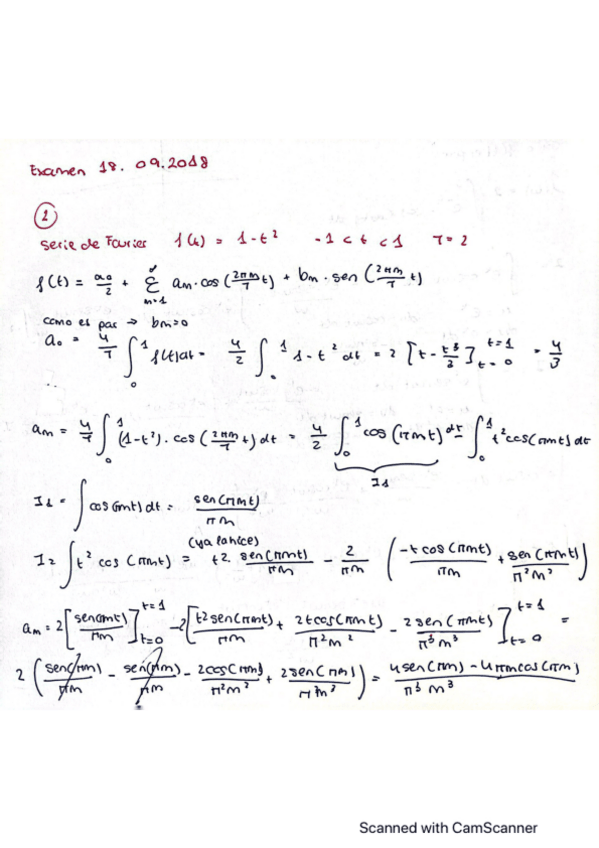 Examen 18.09.2018
1
Serie de Fourier f(t) = 1-t² -1 < t < 1 T= 2
f(t) = a₀/2 + Σ_{m=1}^{∞} am·cos(2πm/T t) + bm·sen(2πm/T t)
como es par → bm=0
a₀ = 4/T ∫₀¹ f(t)dt = 4/2 ∫₀¹ 1-t² dt = 2 [t - t³/3]_{t=0}^{t=1} = 4/3
am = 4/T ∫₀¹ (1-t²)·cos(2πm/T t)dt = 4/2 ∫₀¹ cos(πmt)dt - ∫₀¹ t²cos(πmt)dt
I1
I1 = ∫ cos(πmt)dt = sen(πmt)/πm
(ya lo hice)
I2 ∫ t² cos(πmt) = t2. sen(πmt)/πm - 2/πm (-t cos(πmt)/πm + sen(πmt)/π²m²)
am = 2[sen(πmt)/πm]_{t=0}^{t=1} - 2[t2sen(πmt)/πm + 2tcos(πmt)/π²m² - 2sen(πmt)/π³m³]_{t=0}^{t=1} =
2 (sen(πm)/πm - sen(πm)/πm - 2cos(πm)/π²m² + 2sen(πm)/π³m³) = 4sen(πm) - 4πmcos(πm)/π³m³
Scanned with CamScanner